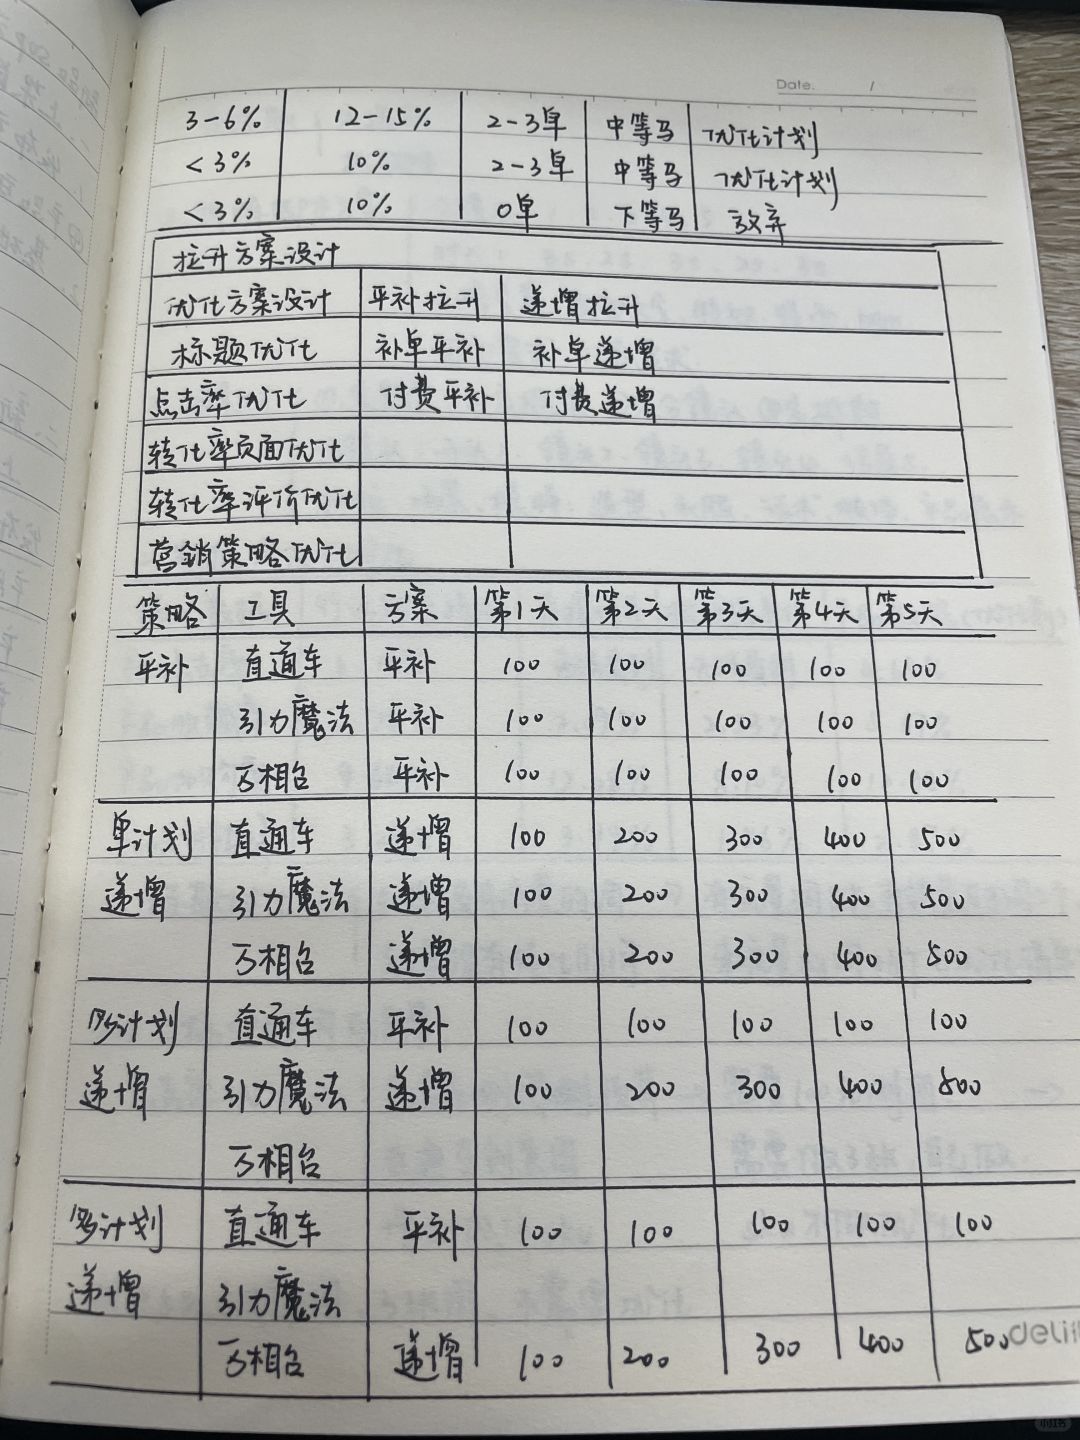 Date. /
3-6% 12-15% 2-3单 中等马 优化计划
<3% 10% 2-3单 中等马 优化计划
<3% 10% 0单 下等马 放弃
拉升方案设计
优化方案设计 平补拉升 递增拉升
标题优化 补单平补 补单递增
点击率优化 付费平补 付费递增
转化率页面优化
转化率评价优化
营销策略优化
策略 工具 方案 第1天 第2天 第3天 第4天 第5天
平补 直通车 平补 100 100 100 100 100
引力魔法 平补 100 100 100 100 100
万相台 平补 100 100 100 100 100
单计划 直通车 递增 100 200 300 400 500
递增 引力魔法 递增 100 200 300 400 500
万相台 递增 100 200 300 400 500
多计划 直通车 平补 100 100 100 100 100
递增 引力魔法 递增 100 200 300 400 500
万相台
多计划 直通车 平补 100 100 100 100 100
递增 引力魔法
万相台 递增 100 200 300 400 500
deli